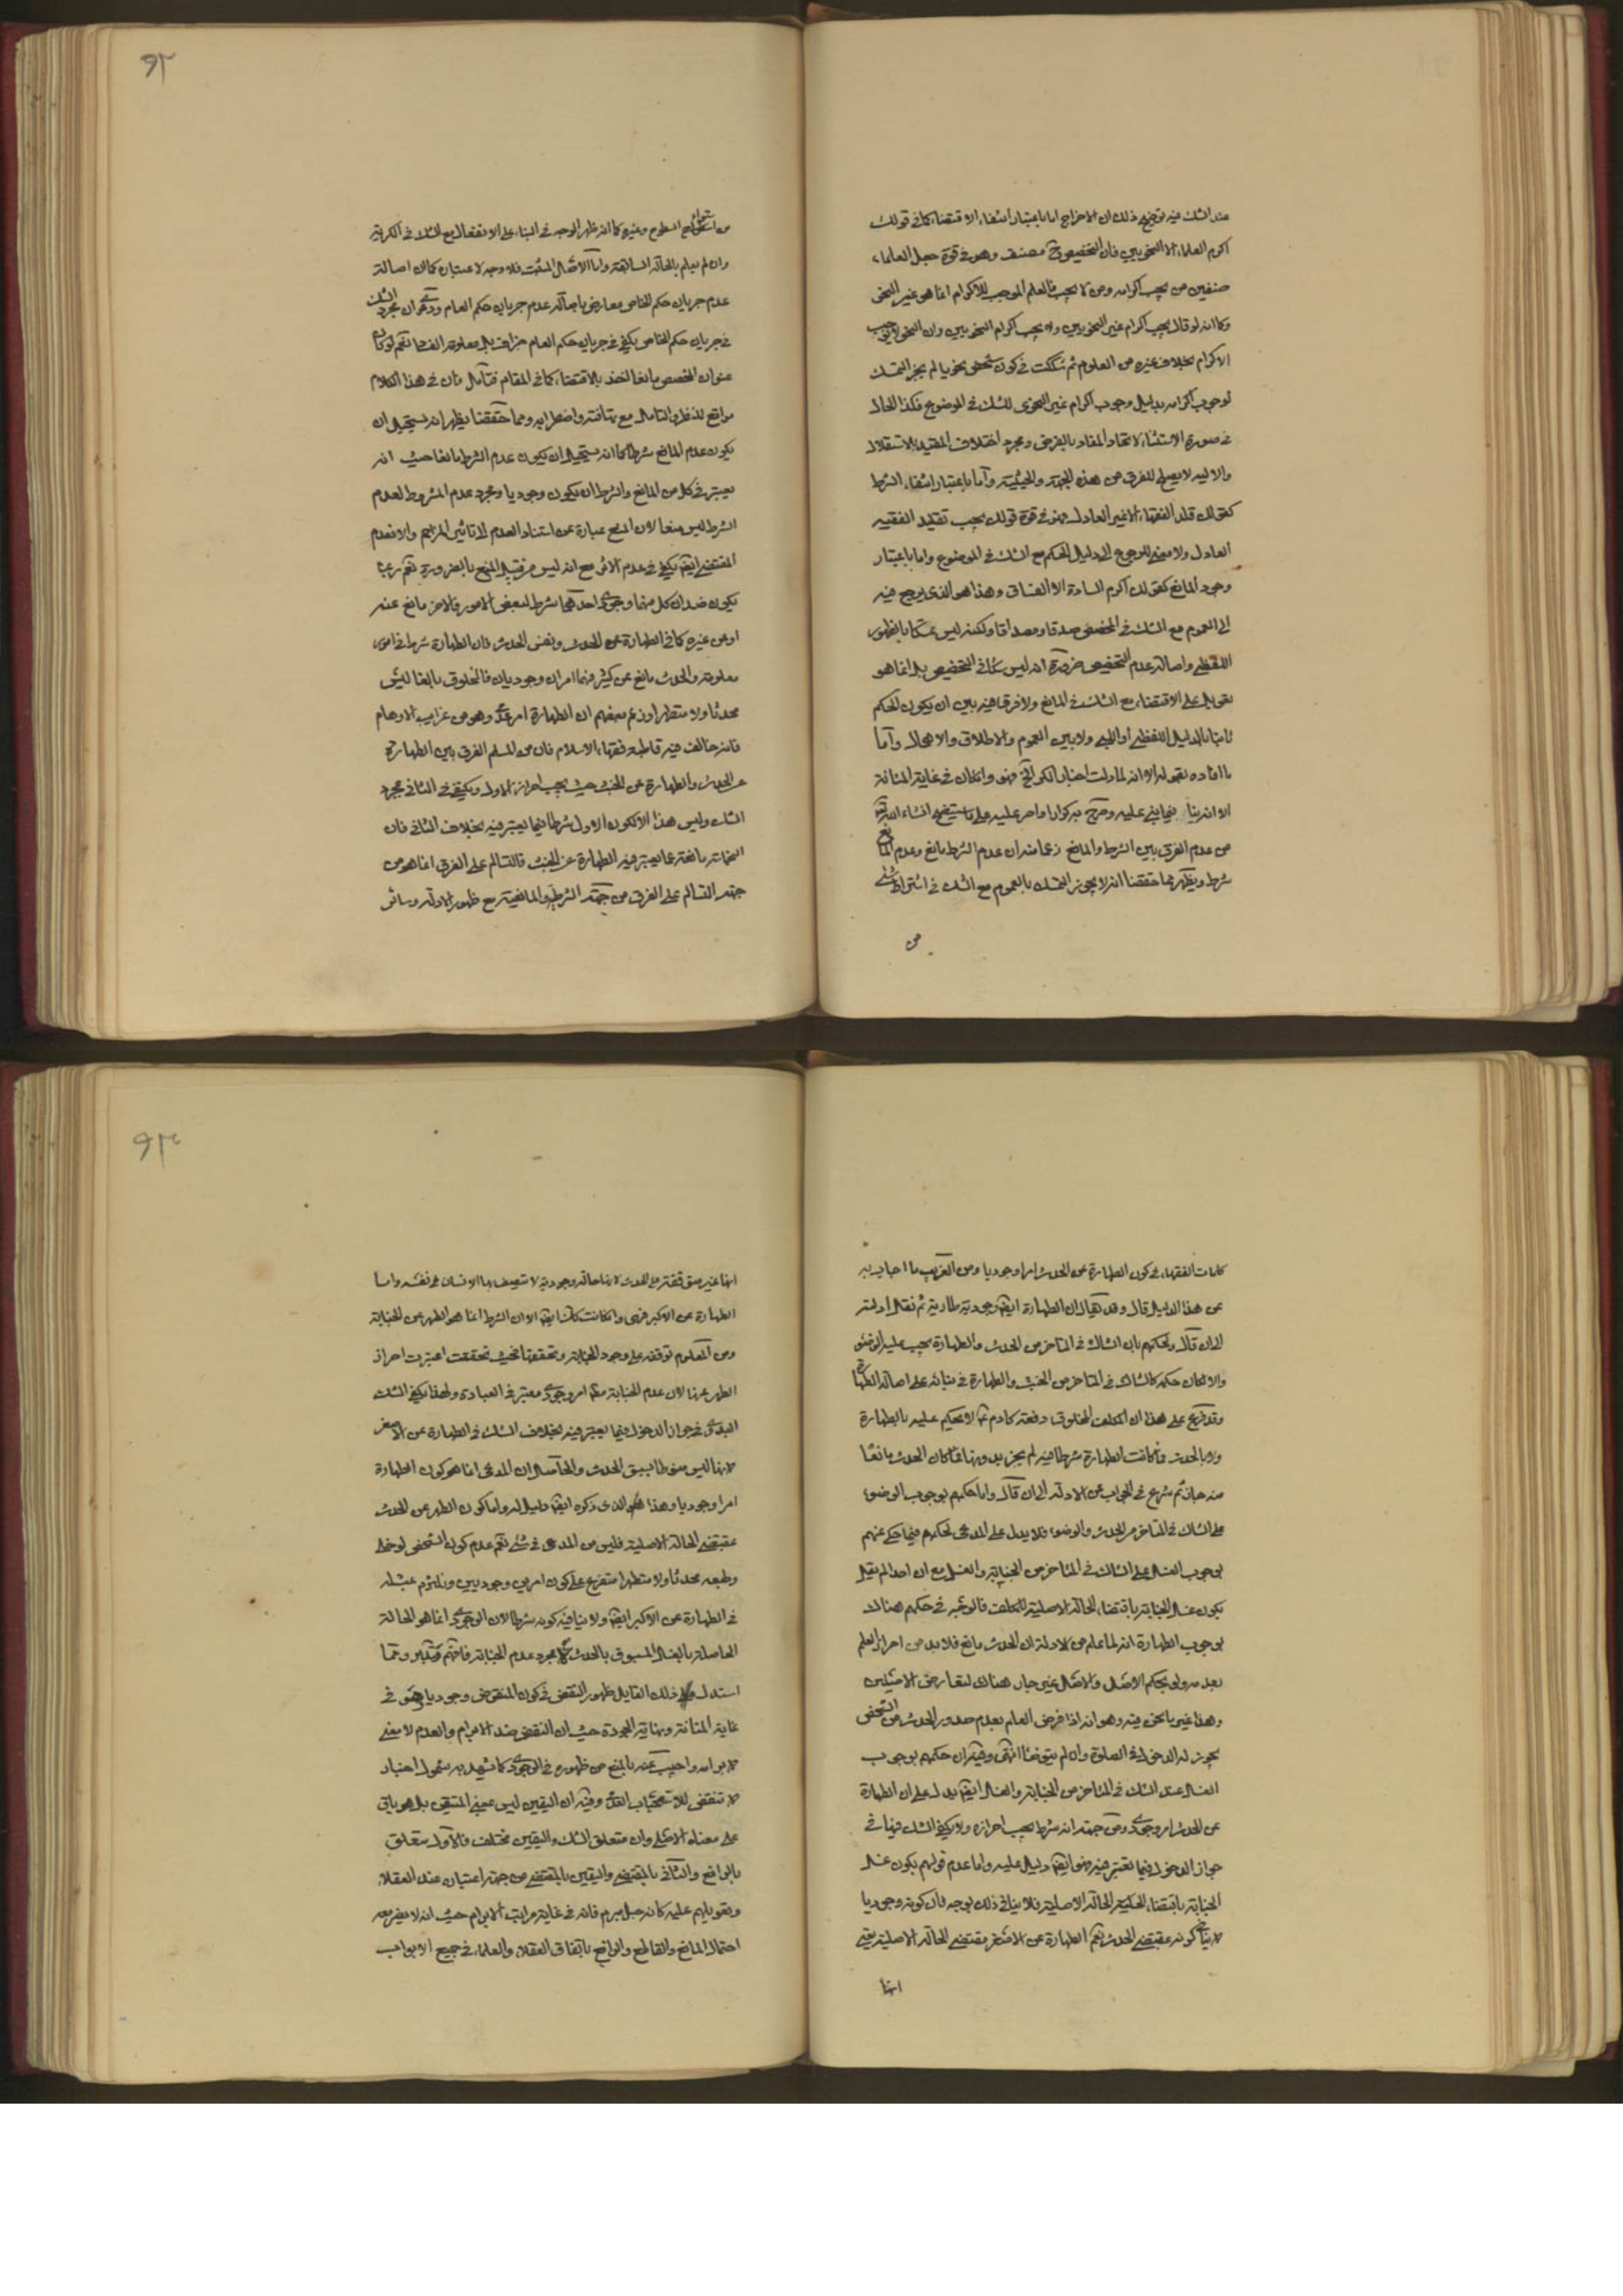 عند الشك فيه توضيح ذلك ان الاخراج اما باعتبار انتفاء الاقتضاء كما في قولك
اكرم العلماء الا النحويين فان التخصيص مصنف وهو في قوة جعل العلماء
صنفين من يجب اكرامه ومن لا يجب فالعلم الموجب للاكرام انما هو غير النحو
وكما انه لو قال يجب اكرام غير النحويين ولا يجب اكرام النحويين وان النحو لا يوجب
الاكرام بخلاف غيره من العلوم ثم شككت في كون شخص نحويا لم يجز التمسك
لوجوب اكرامه بدليل وجوب اكرام غير النحوي للشك في الموضوع فكذا الحال
في صورة الاستثناء لاتحاد المفاد بالفرض ومجرد اختلاف المقيد بالاستقلال
والاليه لا يصلح للفرق من هذه الجهة والحيثية واما باعتبار انتفاء الشرط
كقولك قلد الفقهاء الا غير العادل فهو في قوة قولك يجب تقليد الفقيه
العادل ولا معنى للرجوع الى دليل الحكم مع الشك في الموضوع واما باعتبار
وجود المانع كقولك اكرم السادة الا الفساق وهذا هو الذي يرجع فيه
الى العموم مع الشك في المخصص صدقا ومصداقا ولكنه ليس تمسكا بالظهور
اللفظي واصالة عدم التخصيص ضرورة انه ليس شكا في التخصيص بل انما هو
تعويل على الاقتضاء مع الشك في المانع ولا فرق فيه بين ان يكون الحكم
ثابتا بالدليل اللفظي او اللبي ولا بين العموم والاطلاق والاهمال واما
ما افاده بقوله الا انه لما دلت اخبار الكر الخ فهو وان كان في غاية المتانة
الا انه ينافي ما بنى عليه وصرح به كرارا واصر عليه على ما ستتضح انشاء الله
من عدم الفرق بين الشرط والمانع زعما منه ان عدم الشرط مانع وعدم المانع
شرط ويظهر مما حققنا انه لا يجوز التمسك بالعموم مع الشك في اشتراط شئ
من
٩٢
وان لم يعلم بالحالة السابقة واما الاصل المثبت فلا وجه لاعتباره كما ان اصالة
عدم جريان حكم الخاص معارض باصالة عدم جريان حكم العام ودعوى ان مجرد الشك
في جريان حكم الخاص يكفي في جريان حكم العام جزاف بل معلومة الفساد نعم لو كان
عنوان المخصص مانعا اخذ بالاقتضاء كما في المقام فتامل فان في هذا الكلام
مواقع للنظر والتامل مع تهافته واضطرابه ومما حققنا يظهر انه يستحيل ان
يكون عدم المانع شرطا كما انه يستحيل ان يكون عدم الشرط مانعا حيث انه
يعتبر في كل من المانع والشرط ان يكون وجوديا ومجرد عدم المشروط لعدم
الشرط ليس منعا لان المنع عبارة عن استناد العدم الى تاثير المزاحم والا فعدم
المقتضي ايضا يكفي في عدم الاثر مع انه ليس من قبيل المنع بالضرورة نعم ربما
يكون ضدان كل منهما وجودي احدهما شرط لبعض الامور والاخر مانع عنه
او عن غيره كما في الطهارة عن الحدث ونفس الحدث فان الطهارة شرط في امور
معلومة والحدث مانع عن كثير فهما امران وجوديان فالمخلوق بالغا ليس
محدثا ولا متطهرا وزعم بعضهم ان الطهارة امر عدمي وهو من غرايب الاوهام
فانه خالف فيه قاطبة فقهاء الاسلام فان من المسلم الفرق بين الطهارة
عن الحدث والطهارة عن الخبث حيث يجب احراز الاول ويكتفى في الثاني مجرد
الشك وليس هذا الا لكون الاول شرطا فيما يعتبر فيه بخلاف الثاني فان
النجاسة مانعة عما يعتبر فيه الطهارة عن الخبث فالتسالم على الفرق انما هو من
جهة التسالم على الفرق من جهة الشرطية والمانعية مع ظهور الادلة وسائر
كلمات الفقهاء في كون الطهارة عن الحدث امرا وجوديا ومن الغريب ما اجاب به
عن هذا الدليل قال وقد يقال ان الطهارة ايضا وجودية طارية ثم نقل ادلته
الى ان قال ولحكمهم بان الشاك في المتاخر من الحدث والطهارة يجب عليه الوضوء
والا لكان حكمه كالشاك في المتاخر من الخبث والطهارة في بنائه على اصالة الطهارة
وقد فرع على هذا ان المكلف المخلوق دفعة كادم لا يحكم عليه بالطهارة
ولا بالحدث فما كانت الطهارة شرطا فيه لم يجز بدونها وما كان الحدث مانعا
منه جاز ثم شرع في الجواب عن الادلة الى ان قال واما حكمهم بوجوب الوضوء
على الشاك في المتاخر من الحدث والوضوء فلا يدل على المدعى لحكمهم فيما حكى عنهم
بوجوب الغسل على الشاك في المتاخر من الجنابة والغسل مع ان احدا لم يقل
بكون غسل الجنابة باقتضاء الحالة الاصلية للمكلف فالوجه في حكمهم هنالك
بوجوب الطهارة انه لما علم من الادلة ان الحدث مانع فلا بد من احراز العلم
بعدمه ولو بحكم الاصل والاصل غير جار هناك لتعارض الاصلين
وهذا غير ما نحن فيه وهو انه اذا فرض العلم بعدم صدور الحدث من الشخص
يجوز له الدخول في الصلوة وان لم يتوضأ انتهى وفيه ان حكمهم بوجوب
الغسل عند الشك في المتاخر من الجنابة والغسل ايضا يدل على ان الطهارة
عن الحدث امر وجودي ومن جهة انه شرط يجب احرازه ولا يكفي الشك فيها في
جواز الدخول فيما تعتبر فيه فهو ايضا دليل عليه واما عدم قولهم بكون غسل
الجنابة باقتضاء الحالة الاصلية فلا ينافي ذلك بوجه فان كونه وجوديا
لا ينافي كونه مقتضى الحدث نعم الطهارة عن الاصغر مقتضى الحالة الاصلية يعني
انها
٩٣
انها غير متوقفة على الحدث لانها حالة وجودية لا تتصف بها الانسان في نفسه واما
الطهارة عن الاكبر فهي وان كانت كذلك ايضا الا ان الشرط انما هو الطهر عن الجنابة
ومن المعلوم توقفه على وجود الجنابة وتحققها فحيث تحققت اعتبرت احراز
الطهر عنها لان عدم الجنابة امر وجودي معتبر في العبادة ولهذا يكفي الشك
البدوي في جواز الدخول فيما يعتبر فيه بخلاف الشك في الطهارة عن الاصغر
لانها ليس منوطا بسبق الحدث والحاصل ان المدعى انما هو كون الطهارة
امرا وجوديا وهذا هو الذي ذكره ايضا دليل له واما كون الطهر عن الحدث
مقتضى الحالة الاصلية فليس من المدعى في شئ نعم عدم كون الشخص لو خلي
وطبعه محدثا ولا متطهرا متفرع على كون امرين وجوديين ونلتزم بمثله
في الطهارة عن الاكبر ايضا ولا ينافيه كونه شرطا لان الوجودي انما هو الحالة
الحاصلة بالغسل المسبوق بالحدث لا مجرد عدم الجنابة فافهم وتدبر ومما
استدل به ذلك القايل ظهور النقض في كون المنقوض وجوديا وهو في
غاية المتانة ونهاية الجودة حيث ان النقض ضد الابرام والعدم لا معنى
لابرامه واجيب عنه بالمنع من ظهوره في الوجودي كما يشهد به شمول اخبار
لا تنقض للاستصحاب العدمي وفيه ان اليقين ليس بمعنى المتيقن بل هو باق
على معناه الاصلي وان متعلق الشك واليقين مختلف فالاول متعلق
بالرافع والثاني بالمقتضي واليقين بالمقتضي من جهة اعتباره عند العقلاء
وتعويلهم عليه كانه حبل مبرم فانه في غاية مراتب الابرام حيث انه لا يضر معه
احتمال المانع والقاطع والرافع باتفاق العقلاء والعلماء في جميع الابواب